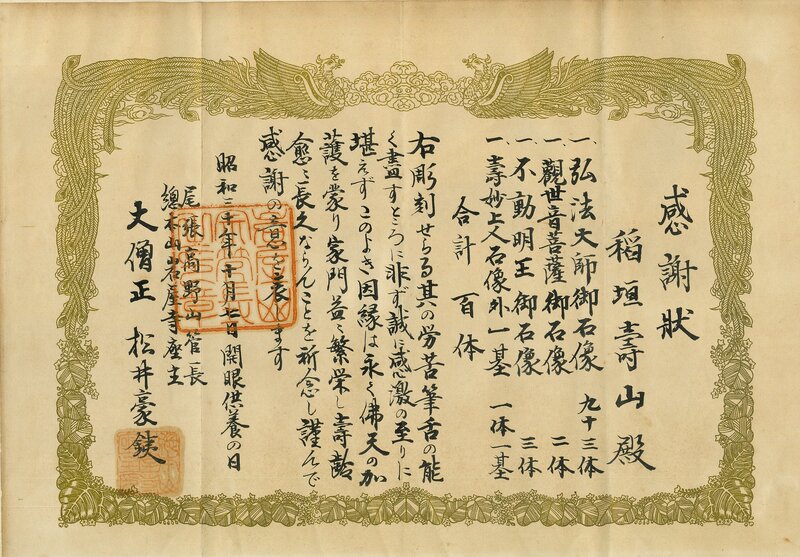 感謝狀
稻垣壽山殿
一、弘法大師御石像 九十三体
一、觀世音菩薩御石像 二体
一、不動明王御石像 三体
一、壽妙上人石像外一基 一体一基
合計 百体
右彫刻せらる其の労苦筆舌の能
く盡すところに非ず誠に感激の至りに
堪えずこのよき因縁は永く佛天の加
護を蒙り家門益〻繁栄し壽齢
愈〻長久ならんことを祈念し謹んで
感謝の意を表します
昭和三十年十月七日開眼供養の日
尾張高野山管長
總本山岩屋寺座主
大僧正 松井豪鋏